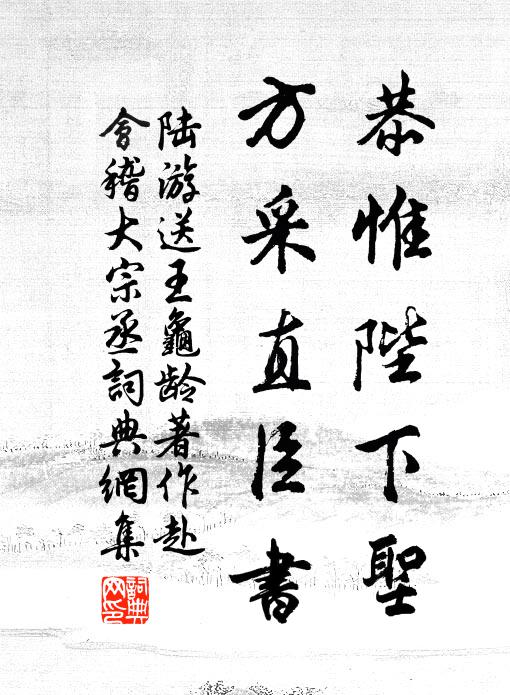 恭惟陛下聖
方采直臣書
陸游送王龜龄著作赴
會稽大宗丞詞典網集
詞典
网印